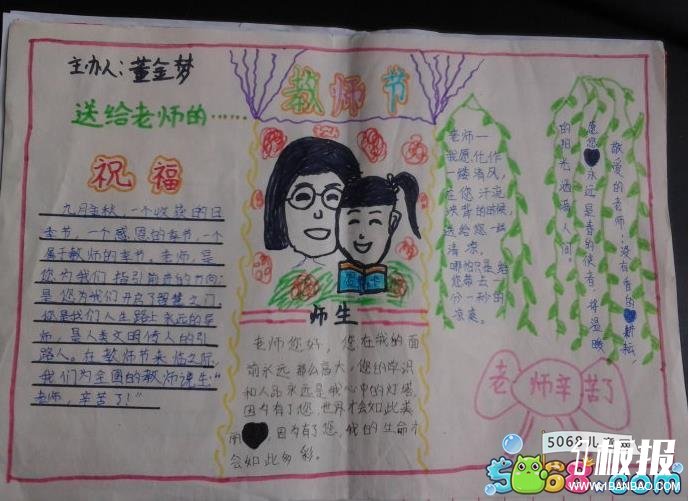 主办人：董金梦
送给老师的……
祝福
九月金秋，一个收获的日
季节，一个感恩的季节，一个
属于教师的季节。老师，是
您为我们指引前进的方向；
是您为我们开启了智慧之门。
您是我们人生路上永远的导
师，是人类文明传人的引
路人。在教师节来临之际，
我们为全国的教师说生“
老师，辛苦了！”
教师节
师生
老师您好，您在我的面
前永远那么高大，您的学识
和人品永远是我心中的灯塔
因为有了您，世界才会如此美
丽，因为有了您，我的生命才
会如此多彩。
老师一
我愿化作
一缕清风，
在您汗流
浃背的时候，
送给您一样
清凉。
哪怕只是给
您带去一
分一秒的
凉爽。
敬爱的老师：没有者的耕耘，
愿您永远是春的使者，将温暖
的阳光洒满人间。
老师辛苦了
5068儿童网
5068.com
板报
WWW.1BANBAO.COM